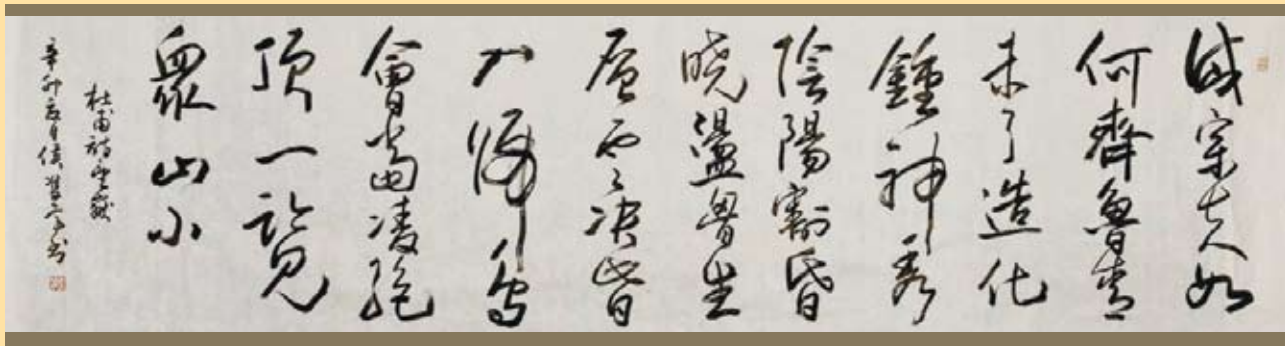 岱宗夫如
何齊魯青
未了造化
鍾神秀
陰陽割昏
曉盪胷生
層雲決眥
入歸鳥
會當凌絕
頂一覽
眾山小
杜甫詩望嶽
辛卯夏月侯書